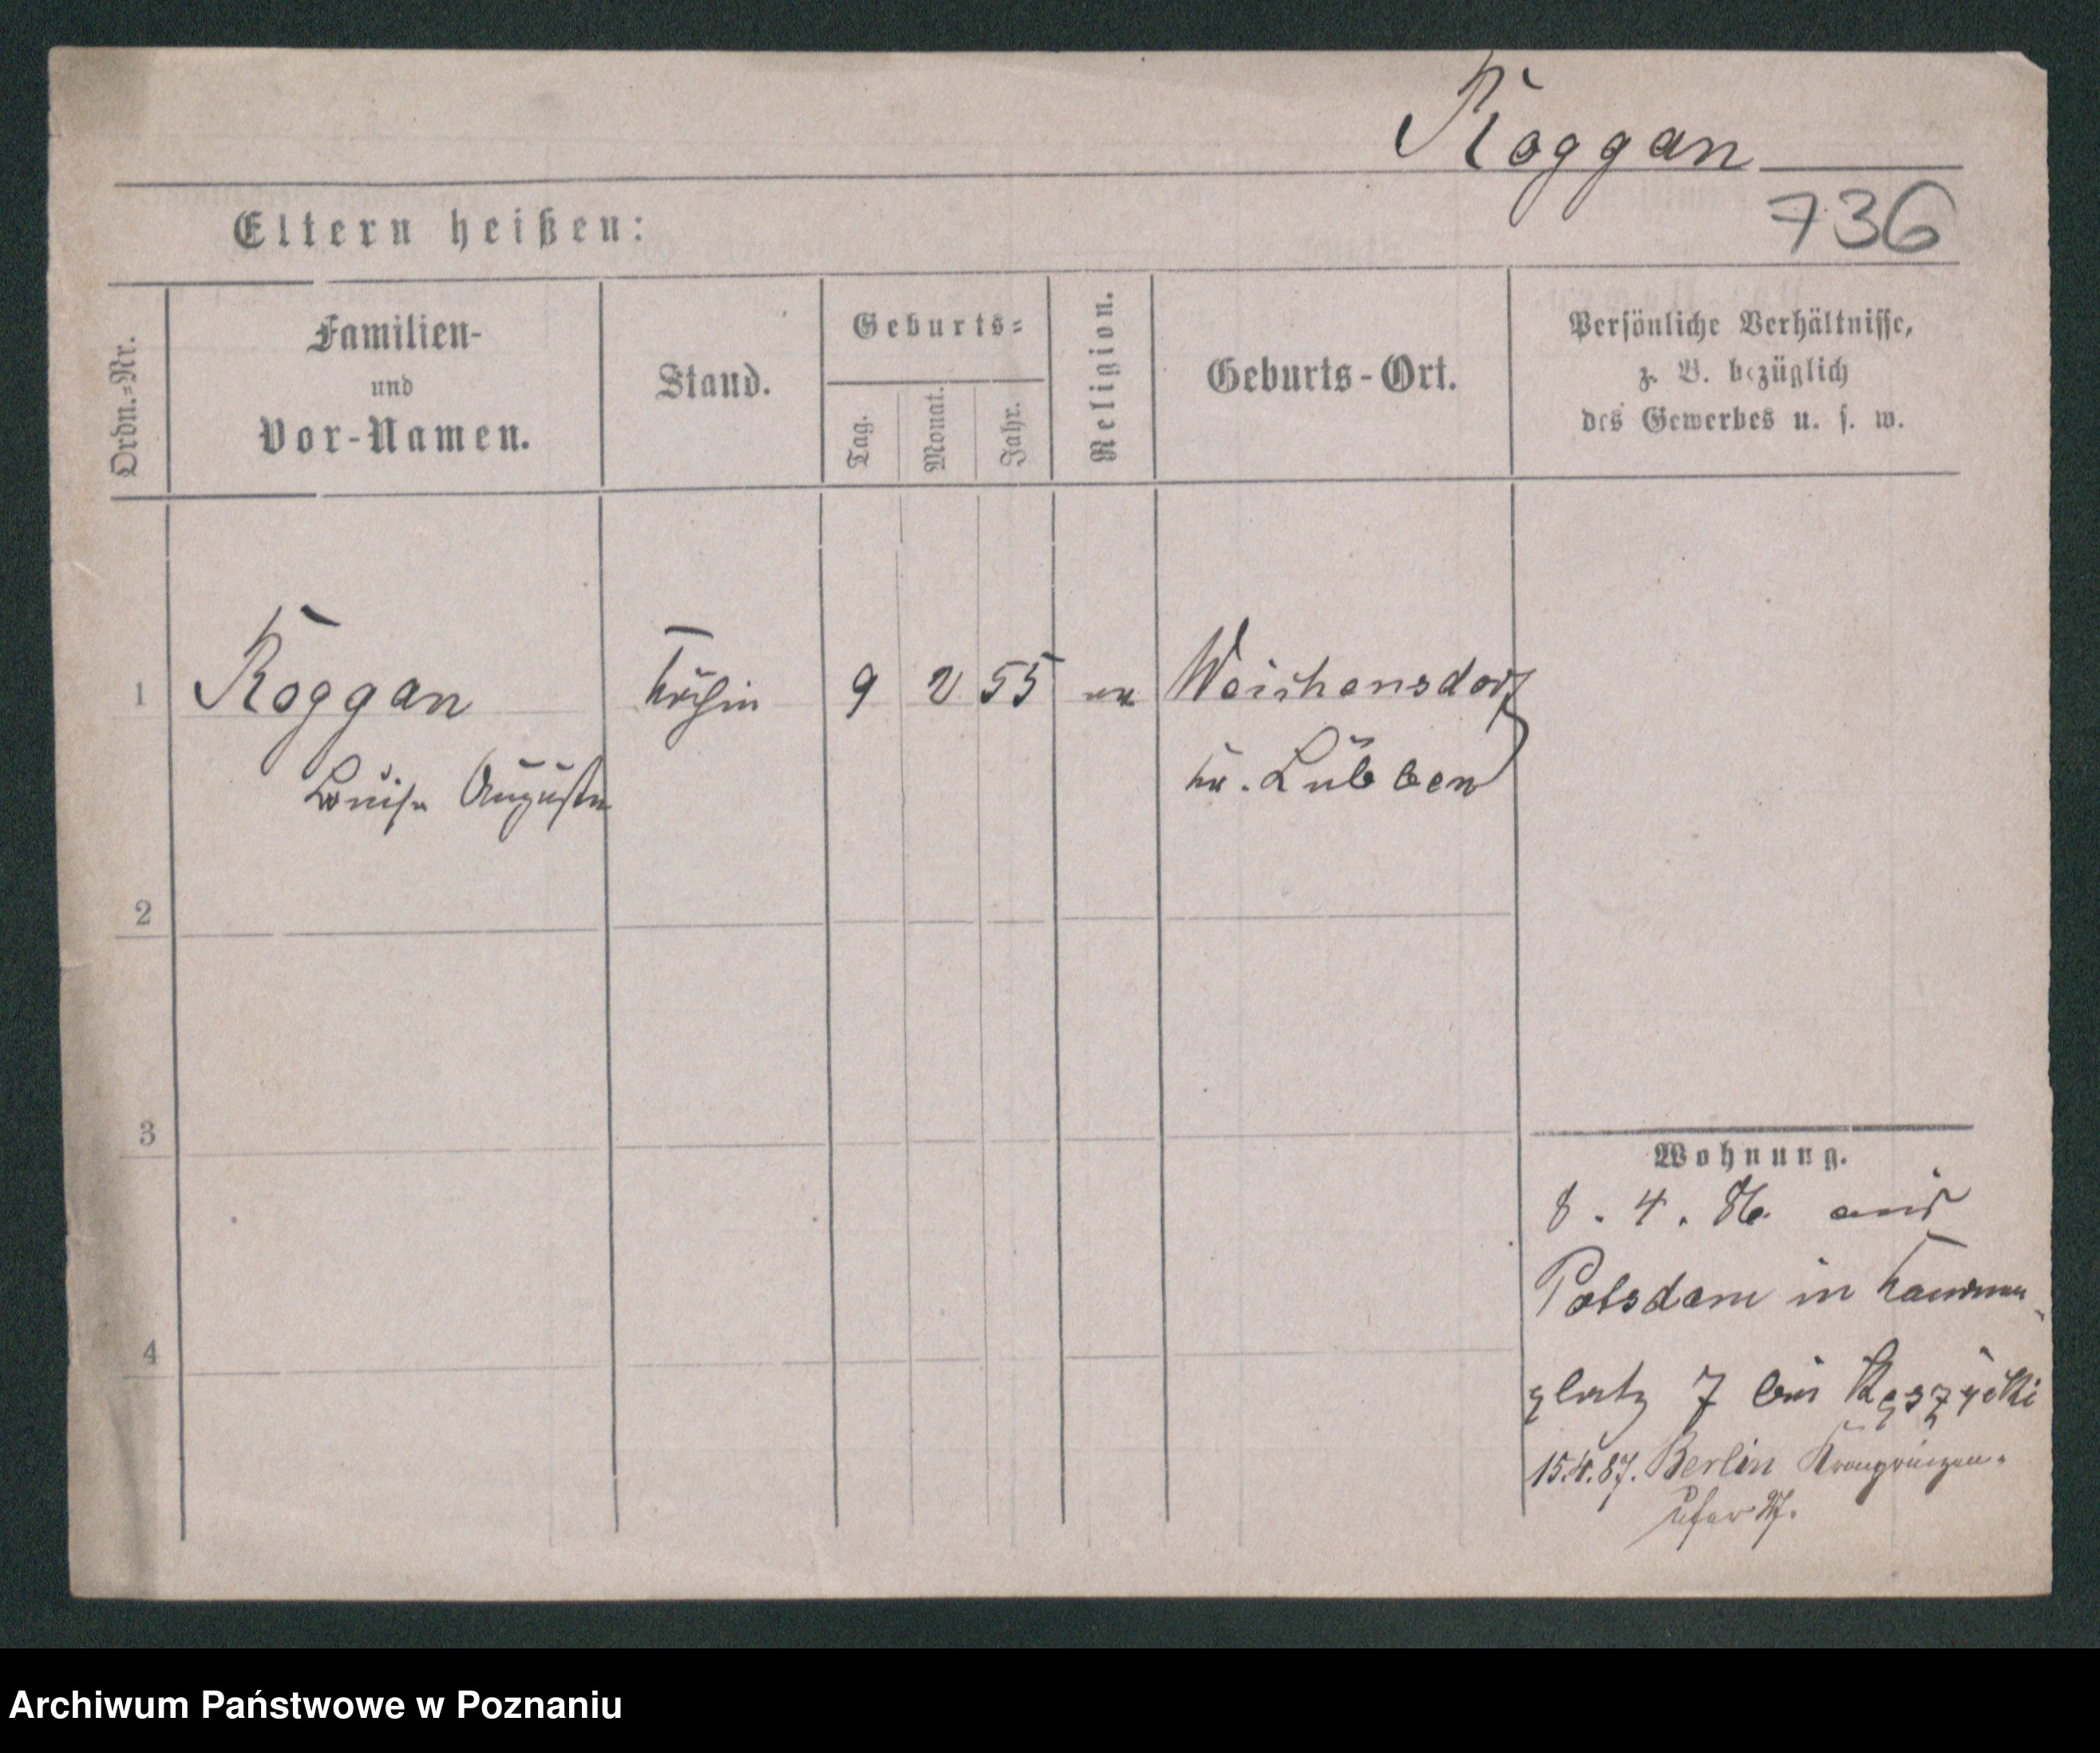 Koggan
736
Eltern heißen:
Ordn.-Nr.
Familien-
und
Vor-Namen.
Stand.
Geburts-
Tag.
Monat.
Jahr.
Religion.
Geburts-Ort.
Persönliche Verhältnisse,
z. B. bezüglich
des Gewerbes u. s. w.
1 Koggan Köchin 9 2 55 ev Weichensdorf
Louise Auguste Kr. Lübben
2
3
4
Wohnung.
8. 4. 86. aus
Potsdam in Kanonen
platz 7 bei Kęszycki
15.4.87. Berlin Kronprinzen-
Ufer
Archiwum Państwowe w Poznaniu